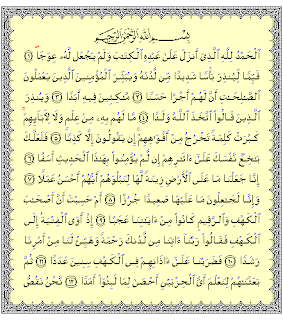 بِسْمِ اللَّهِ الرَّحْمَٰنِ الرَّحِيمِ
الْحَمْدُ لِلَّهِ الَّذِي أَنزَلَ عَلَىٰ عَبْدِهِ الْكِتَابَ وَلَمْ يَجْعَل لَّهُ عِوَجًا ۜ ١
قَيِّمًا لِّيُنذِرَ بَأْسًا شَدِيدًا مِّن لَّدُنْهُ وَيُبَشِّرَ الْمُؤْمِنِينَ الَّذِينَ يَعْمَلُونَ
الصَّالِحَاتِ أَنَّ لَهُمْ أَجْرًا حَسَنًا ٢ مَّاكِثِينَ فِيهِ أَبَدًا ٣ وَيُنذِرَ
الَّذِينَ قَالُوا اتَّخَذَ اللَّهُ وَلَدًا ٤ مَّا لَهُم بِهِ مِنْ عِلْمٍ وَلَا لِآبَائِهِمْ
كَبُرَتْ كَلِمَةً تَخْرُجُ مِنْ أَفْوَاهِهِمْ إِن يَقُولُونَ إِلَّا كَذِبًا ٥ فَلَعَلَّكَ
بَاخِعٌ نَّفْسَكَ عَلَىٰ آثَارِهِمْ إِن لَّمْ يُؤْمِنُوا بِهَٰذَا الْحَدِيثِ أَسَفًا ٦
إِنَّا جَعَلْنَا مَا عَلَى الْأَرْضِ زِينَةً لَّهَا لِنَبْلُوَهُمْ أَيُّهُمْ أَحْسَنُ عَمَلًا ٧
وَإِنَّا لَجَاعِلُونَ مَا عَلَيْهَا صَعِيدًا جُرُزًا ٨ أَمْ حَسِبْتَ أَنَّ أَصْحَابَ
الْكَهْفِ وَالرَّقِيمِ كَانُوا مِنْ آيَاتِنَا عَجَبًا ٩ إِذْ أَوَى الْفِتْيَةُ إِلَى
الْكَهْفِ فَقَالُوا رَبَّنَا آتِنَا مِن لَّدُنكَ رَحْمَةً وَهَيِّئْ لَنَا مِنْ أَمْرِنَا
رَشَدًا ١٠ فَضَرَبْنَا عَلَىٰ آذَانِهِمْ فِي الْكَهْفِ سِنِينَ عَدَدًا ١١ ثُمَّ
بَعَثْنَاهُمْ لِنَعْلَمَ أَيُّ الْحِزْبَيْنِ أَحْصَىٰ لِمَا لَبِثُوا أَمَدًا ١٢ نَّحْنُ نَقُصُّ